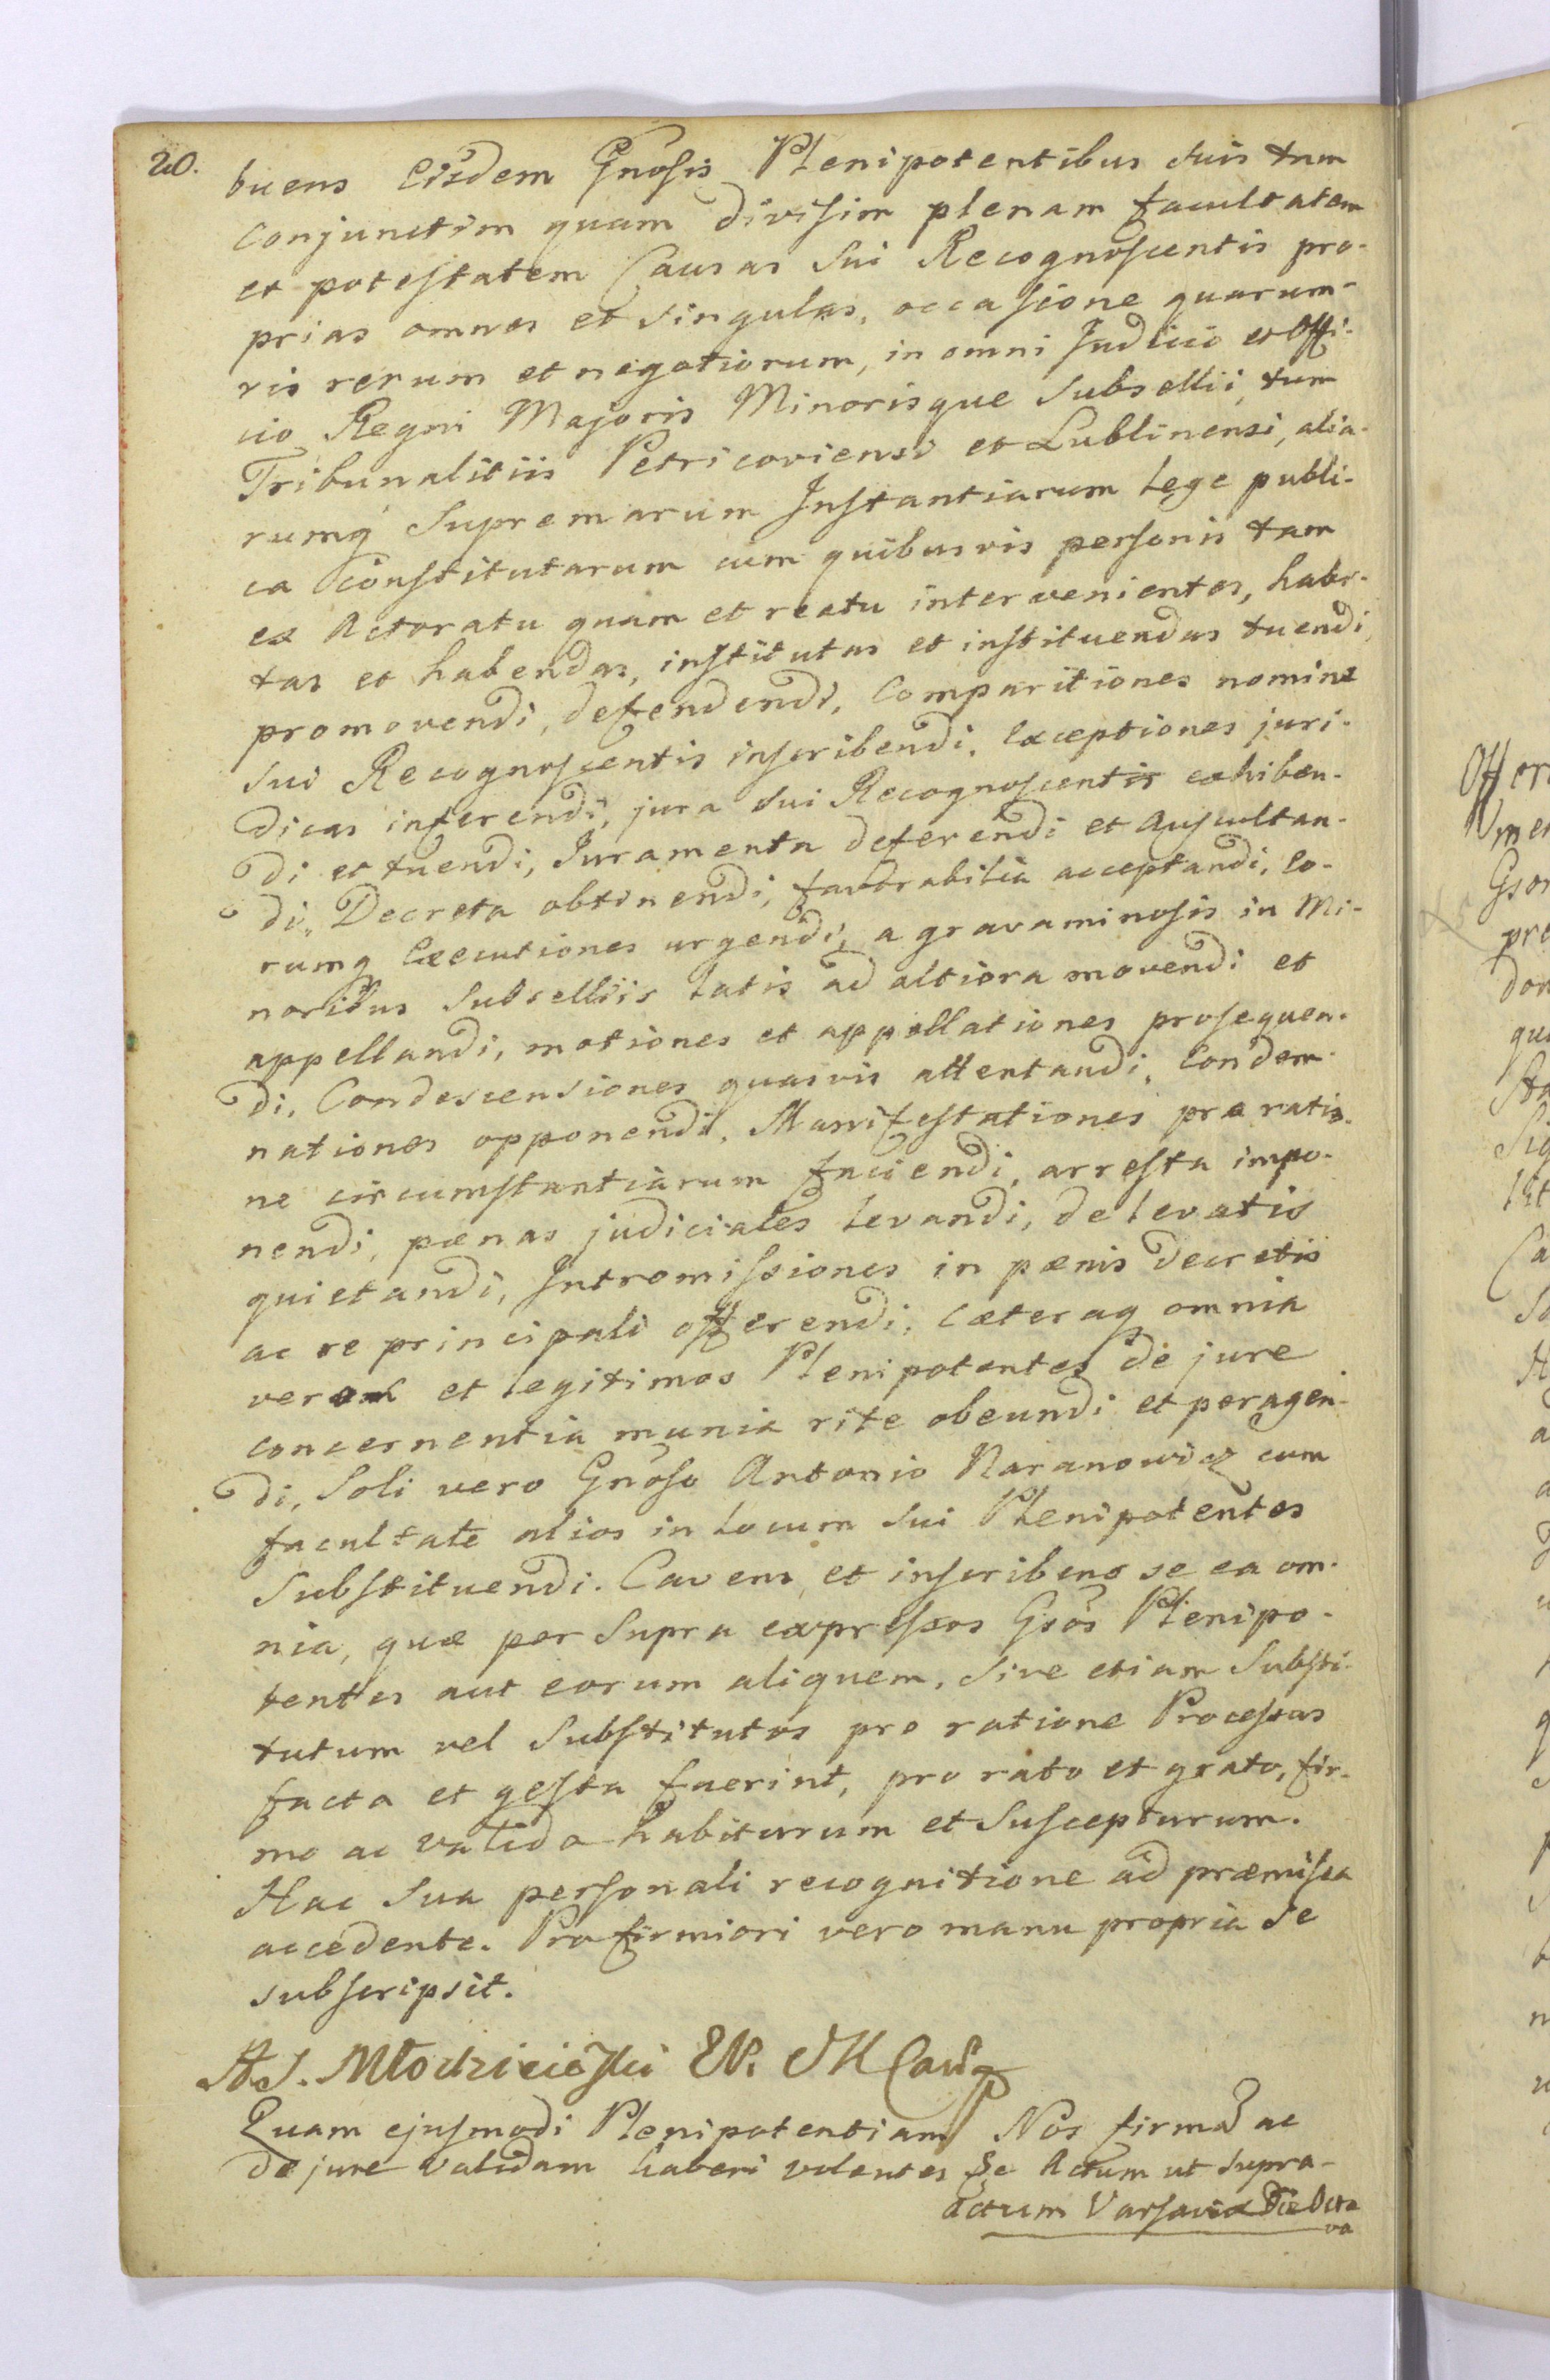 20.
buens Eisdem Gnosis Plenipotentibus suis tam
conjunctim quam divisim plenam facultatem
et potestatem Causas sui Recognoscentis pro-
prias omnes et singulas, occasione quarum-
vis rerum et negotiorum, in omni Judicio et Offi-
cio Regni Majoris Minorisque Subsellii, tum
Tribunalitiis Petricoviensi et Lublinensi, alia-
rumq Supremarum Instantiarum Lege publi-
ca constitutarum cum quibusvis personis tam
ex Actoratu quam et reatu intervenientes, habi-
tas et habendas, institutas et instituendas tuendi,
promovendi, defendendi, Comparitiones nomine
sui Recognoscentis inscribendi, Exceptiones juri-
dicas inferendi, jura sui Recognoscentis exhiben-
di et tuendi, Juramenta deferendi et Auscultan-
di, Decreta obtinendi, favorabilia acceptandi, Eo-
rumq Executiones urgendi, a gravaminosis in Mi-
noribus Subselliis latis ad altiora movendi et
appellandi, motiones et appellationes prosequen-
di, Condescensiones quasvis attentandi, Condem-
nationes opponendi, Manifestationes prae ratio-
ne circumstantiarum faciendi, arresta impo-
nendi, paenas judiciales levandi, de levatis
quietandi, Intromissiones in paenis decretis
ac re principali offerendi, Caeteraq omnia
veros et legitimos Plenipotentes de jure
concernentia munia rite obeundi et peragen-
di, Soli vero Gnoso Antonio Baranowicz cum
facultate alios in locum sui Plenipotentes
substituendi. Cavens et inscribens se ea om-
nia, quae per supra expressos Gsos Plenipo-
tentes aut eorum aliquem, sive etiam Substi-
tutum vel Substitutos pro ratione Processus
facta et gesta fuerint, pro rato et grato, fir-
mo ac valido habiturum et suscepturum.
Hac sua personali recognitione ad praemissa
accedente. Pro firmiori vero manu propria se
subscripsit.
AS. Młodzieioski
Quam ejusmodi Plenipotentiam Nos firmā ac
de jure validam haberi volentes &c Actum ut supra-
Actum Varsaviae Die Octa
va
Offer